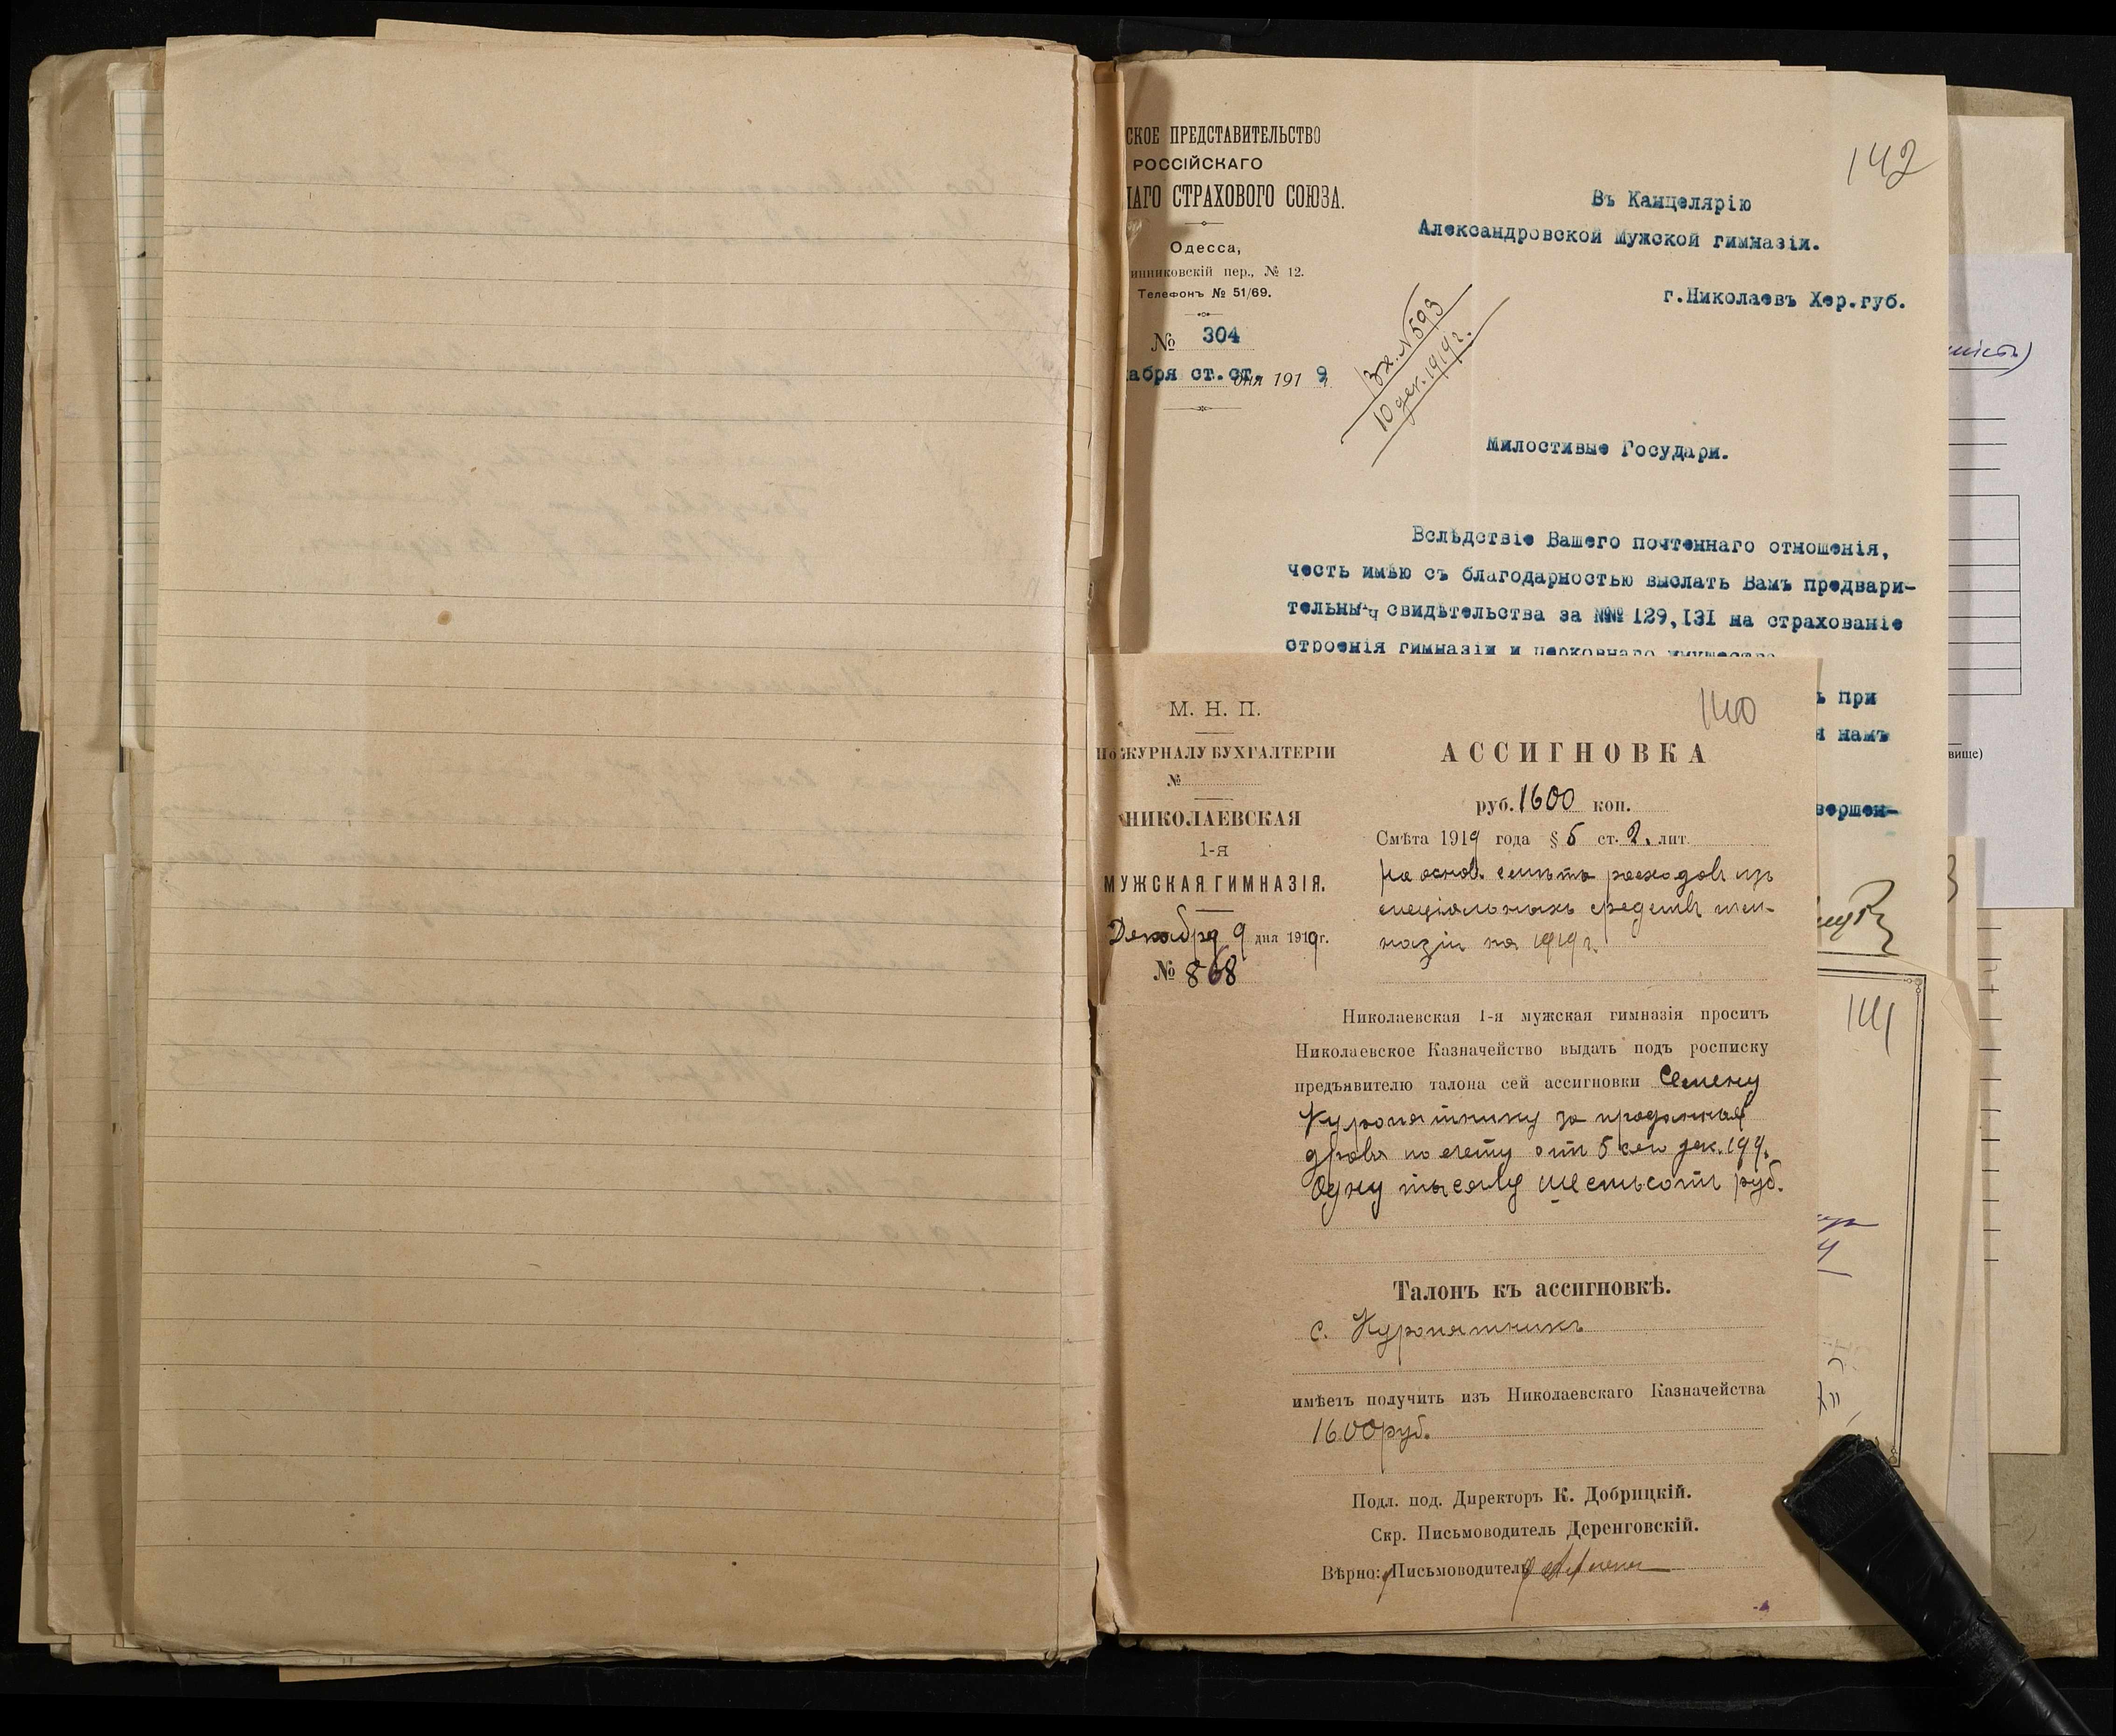 СКОЕ ПРЕДСТАВИТЕЛЬСТВО
РОССІЙСКАГО
НАГО СТРАХОВОГО СОЮЗА.
Одесса,
инниковскій пер., № 12.
Телефонъ № 51/69.
№ 304
абря ст.ст. дня 191 9 г.
142
Въ Канцелярію
Александровской Мужской гимназіи.
г.Николаевъ Хер.губ.
Вх. N 593
10 дек. 1919 г.
Милостивые Государи.
Вслѣдствіе Вашего почтеннаго отношенія,
честь имѣю съ благодарностью выслать Вамъ предвари-
тельны свидѣтельства за №№ 129,I3I на страхованіе
строенія гимназіи и церковнаго имущества
ъ при
я намъ
вершен-
вище)
141
140
М. Н. П.
По ЖУРНАЛУ БУХГАЛТЕРІИ
№
НИКОЛАЕВСКАЯ
1-я
МУЖСКАЯ ГИМНАЗІЯ.
Декабря 9 дня 1919 г.
№ 868
АССИГНОВКА
руб. 1600 коп.
Смѣта 1919 года § 5 ст. 2. лит.
на основ. смѣты расходовъ изъ
спеціальныхъ средствъ гим-
назіи на 1919 г.
Николаевская 1-я мужская гимназія проситъ
Николаевское Казначейство выдать подъ росписку
предъявителю талона сей ассигновки Семену
Куропятнику за проданныя
дрова по счету отъ 5 сего дек. 199.
Одну тысячу шестьсотъ руб.
Талонъ къ ассигновкѣ.
С. Куропятникъ
имѣетъ получить изъ Николаевскаго Казначейства
1600 руб.
Подл. под. Директоръ К. Добрицкій.
Скр. Письмоводитель Деренговскій.
Вѣрно: Письмоводитель